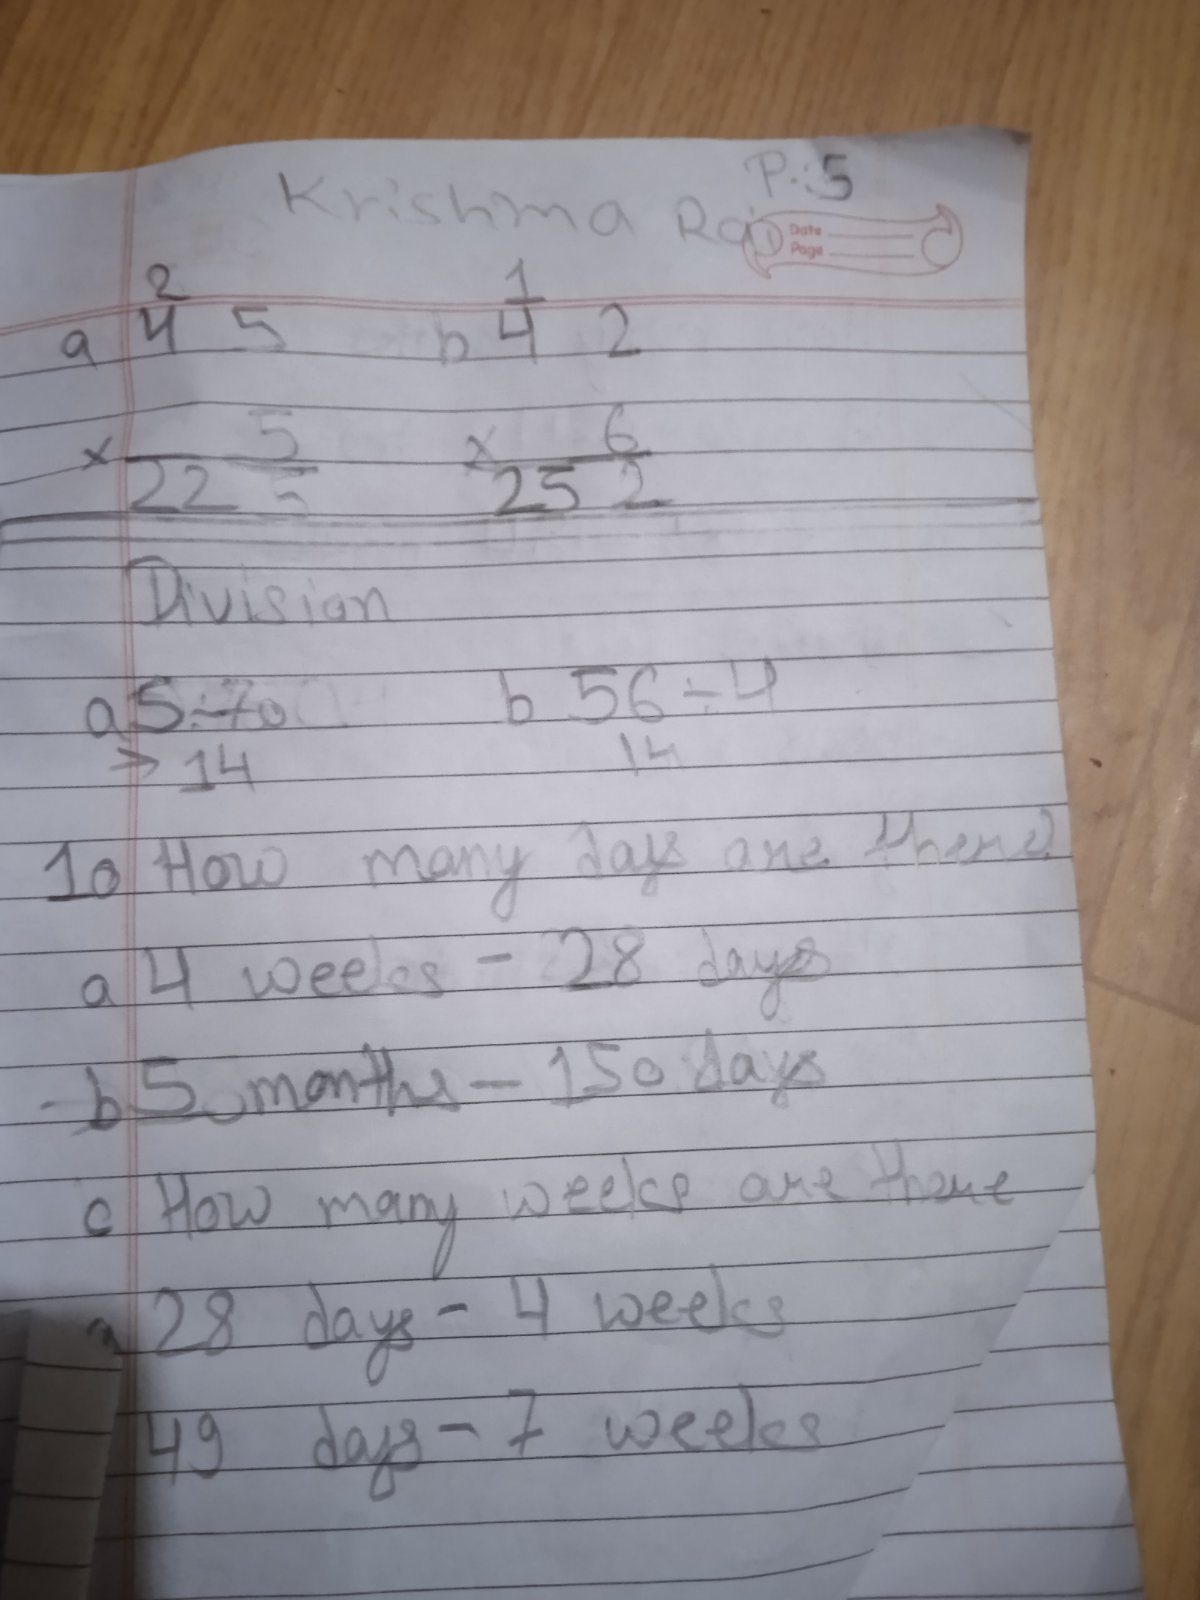 P.:5
Krishma Rai
Date
Page
2 1
a 4 5 b 4 2
x 5 x 6
22 5 25 2
Division
a 5÷70 b 56÷4
→ 14 14
10 How many days are there?
a 4 weeks - 28 days
b 5 months - 150 days
c How many weeks are there
28 days - 4 weeks
49 days - 7 weeks